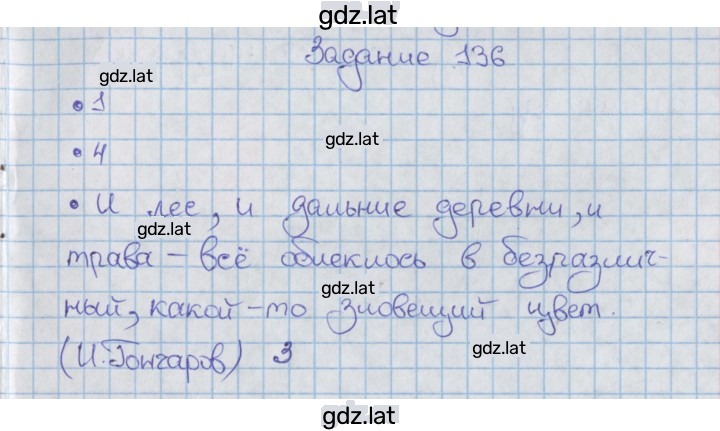 gdz.lat
Задание 136
gdz.lat
• 1
gdz.lat
• 4
• И лес, и дальние деревни, и
gdz.lat
трава – всё облеклось в безразлич-
gdz.lat
ный, какой-то зловещий цвет.
(И. Гончаров) 3
gdz.lat
gdz.lat